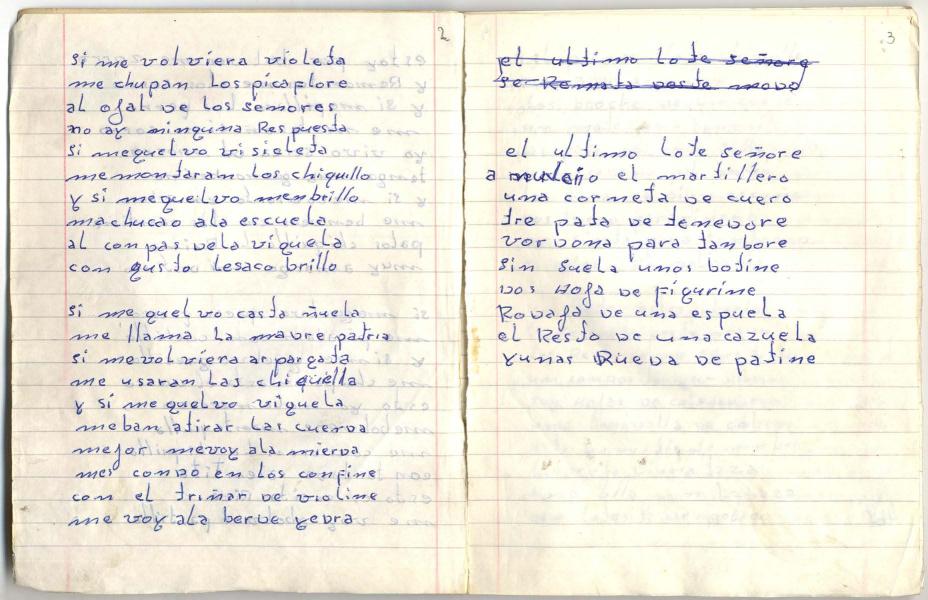 2
si me volviera violeta
me chupan los picaflore
al ojal de los señores
no ay ninguna Respuesta
si me guelvo visicleta
me montaran los chiquillo
y si me guelvo menbrillo
machucao ala escuela
al conpas dela viguela
con gusto lesaco brillo
si me guelvo castañuela
me llama la madre patria
si me volviera arpargata
me usaran las chiquella
y si me guelvo viguela
me ban atirar las cuerda
mejor me voy ala mierda
mes condo en los confine
con el triñar de violine
me voy ala berde yebra
3
el ultimo lote señore
se Remata deste modo
el ultimo lote señore
a el martillero
una corneta de cuero
tre pata de tenedore
dordona para tanbore
sin suela unos botine
dos hoja de figurine
Rodaja de una espuela
el Resto de una cazuela
yunas Rueda de patine